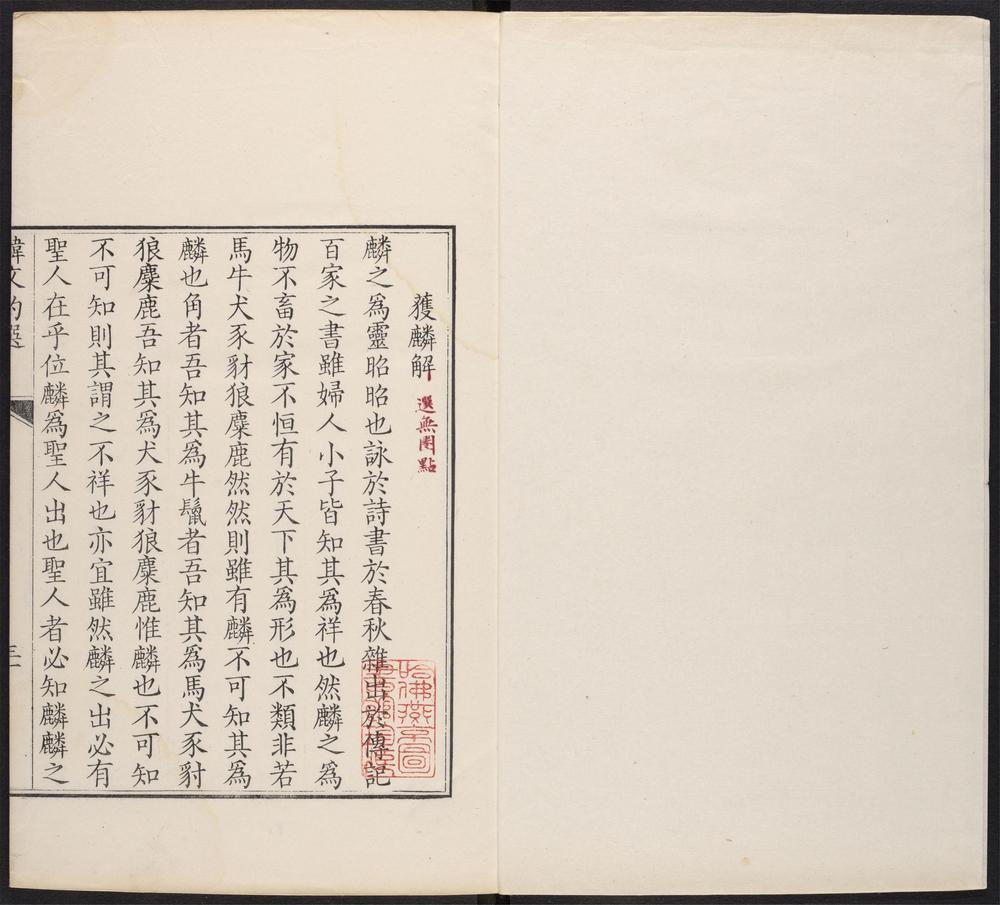 獲麟解
選無圈點
麟之爲靈昭昭也詠於詩書於春秋雜出於傳記
百家之書雖婦人小子皆知其爲祥也然麟之爲
物不畜於家不恒有於天下其爲形也不類非若
馬牛犬豕豺狼麋鹿然然則雖有麟不可知其爲
麟也角者吾知其爲牛鬣者吾知其爲馬犬豕豺
狼麋鹿吾知其爲犬豕豺狼麋鹿惟麟也不可知
不可知則其謂之不祥也亦宜雖然麟之出必有
聖人在乎位麟爲聖人出也聖人者必知麟麟之
韓文約選
哈佛燕京圖